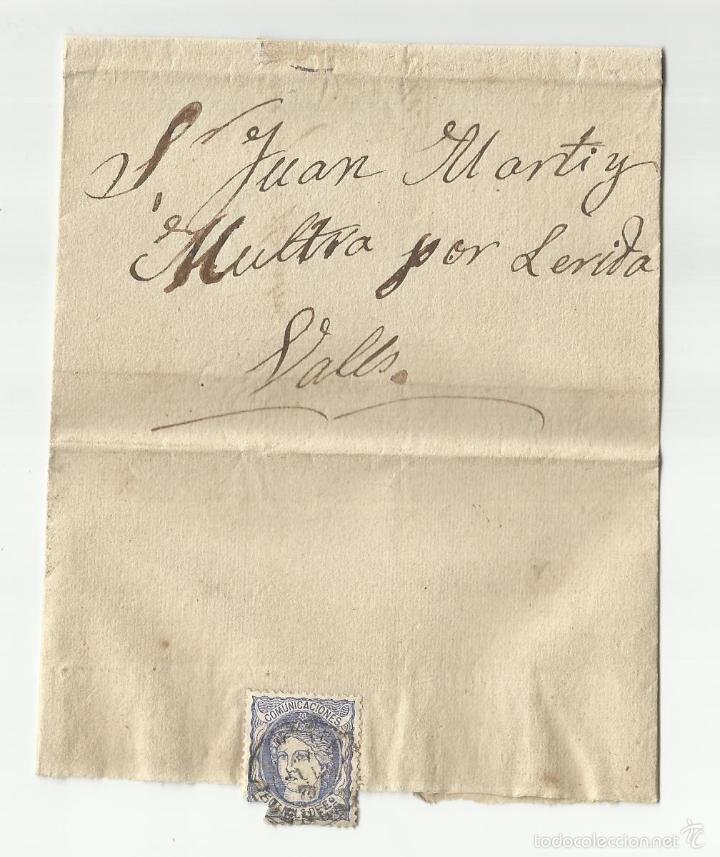 Sr Juan Marti y
Multra por Lerida
Valls.
COMUNICACIONES
50 MILS DE EO
todocoleccion.net